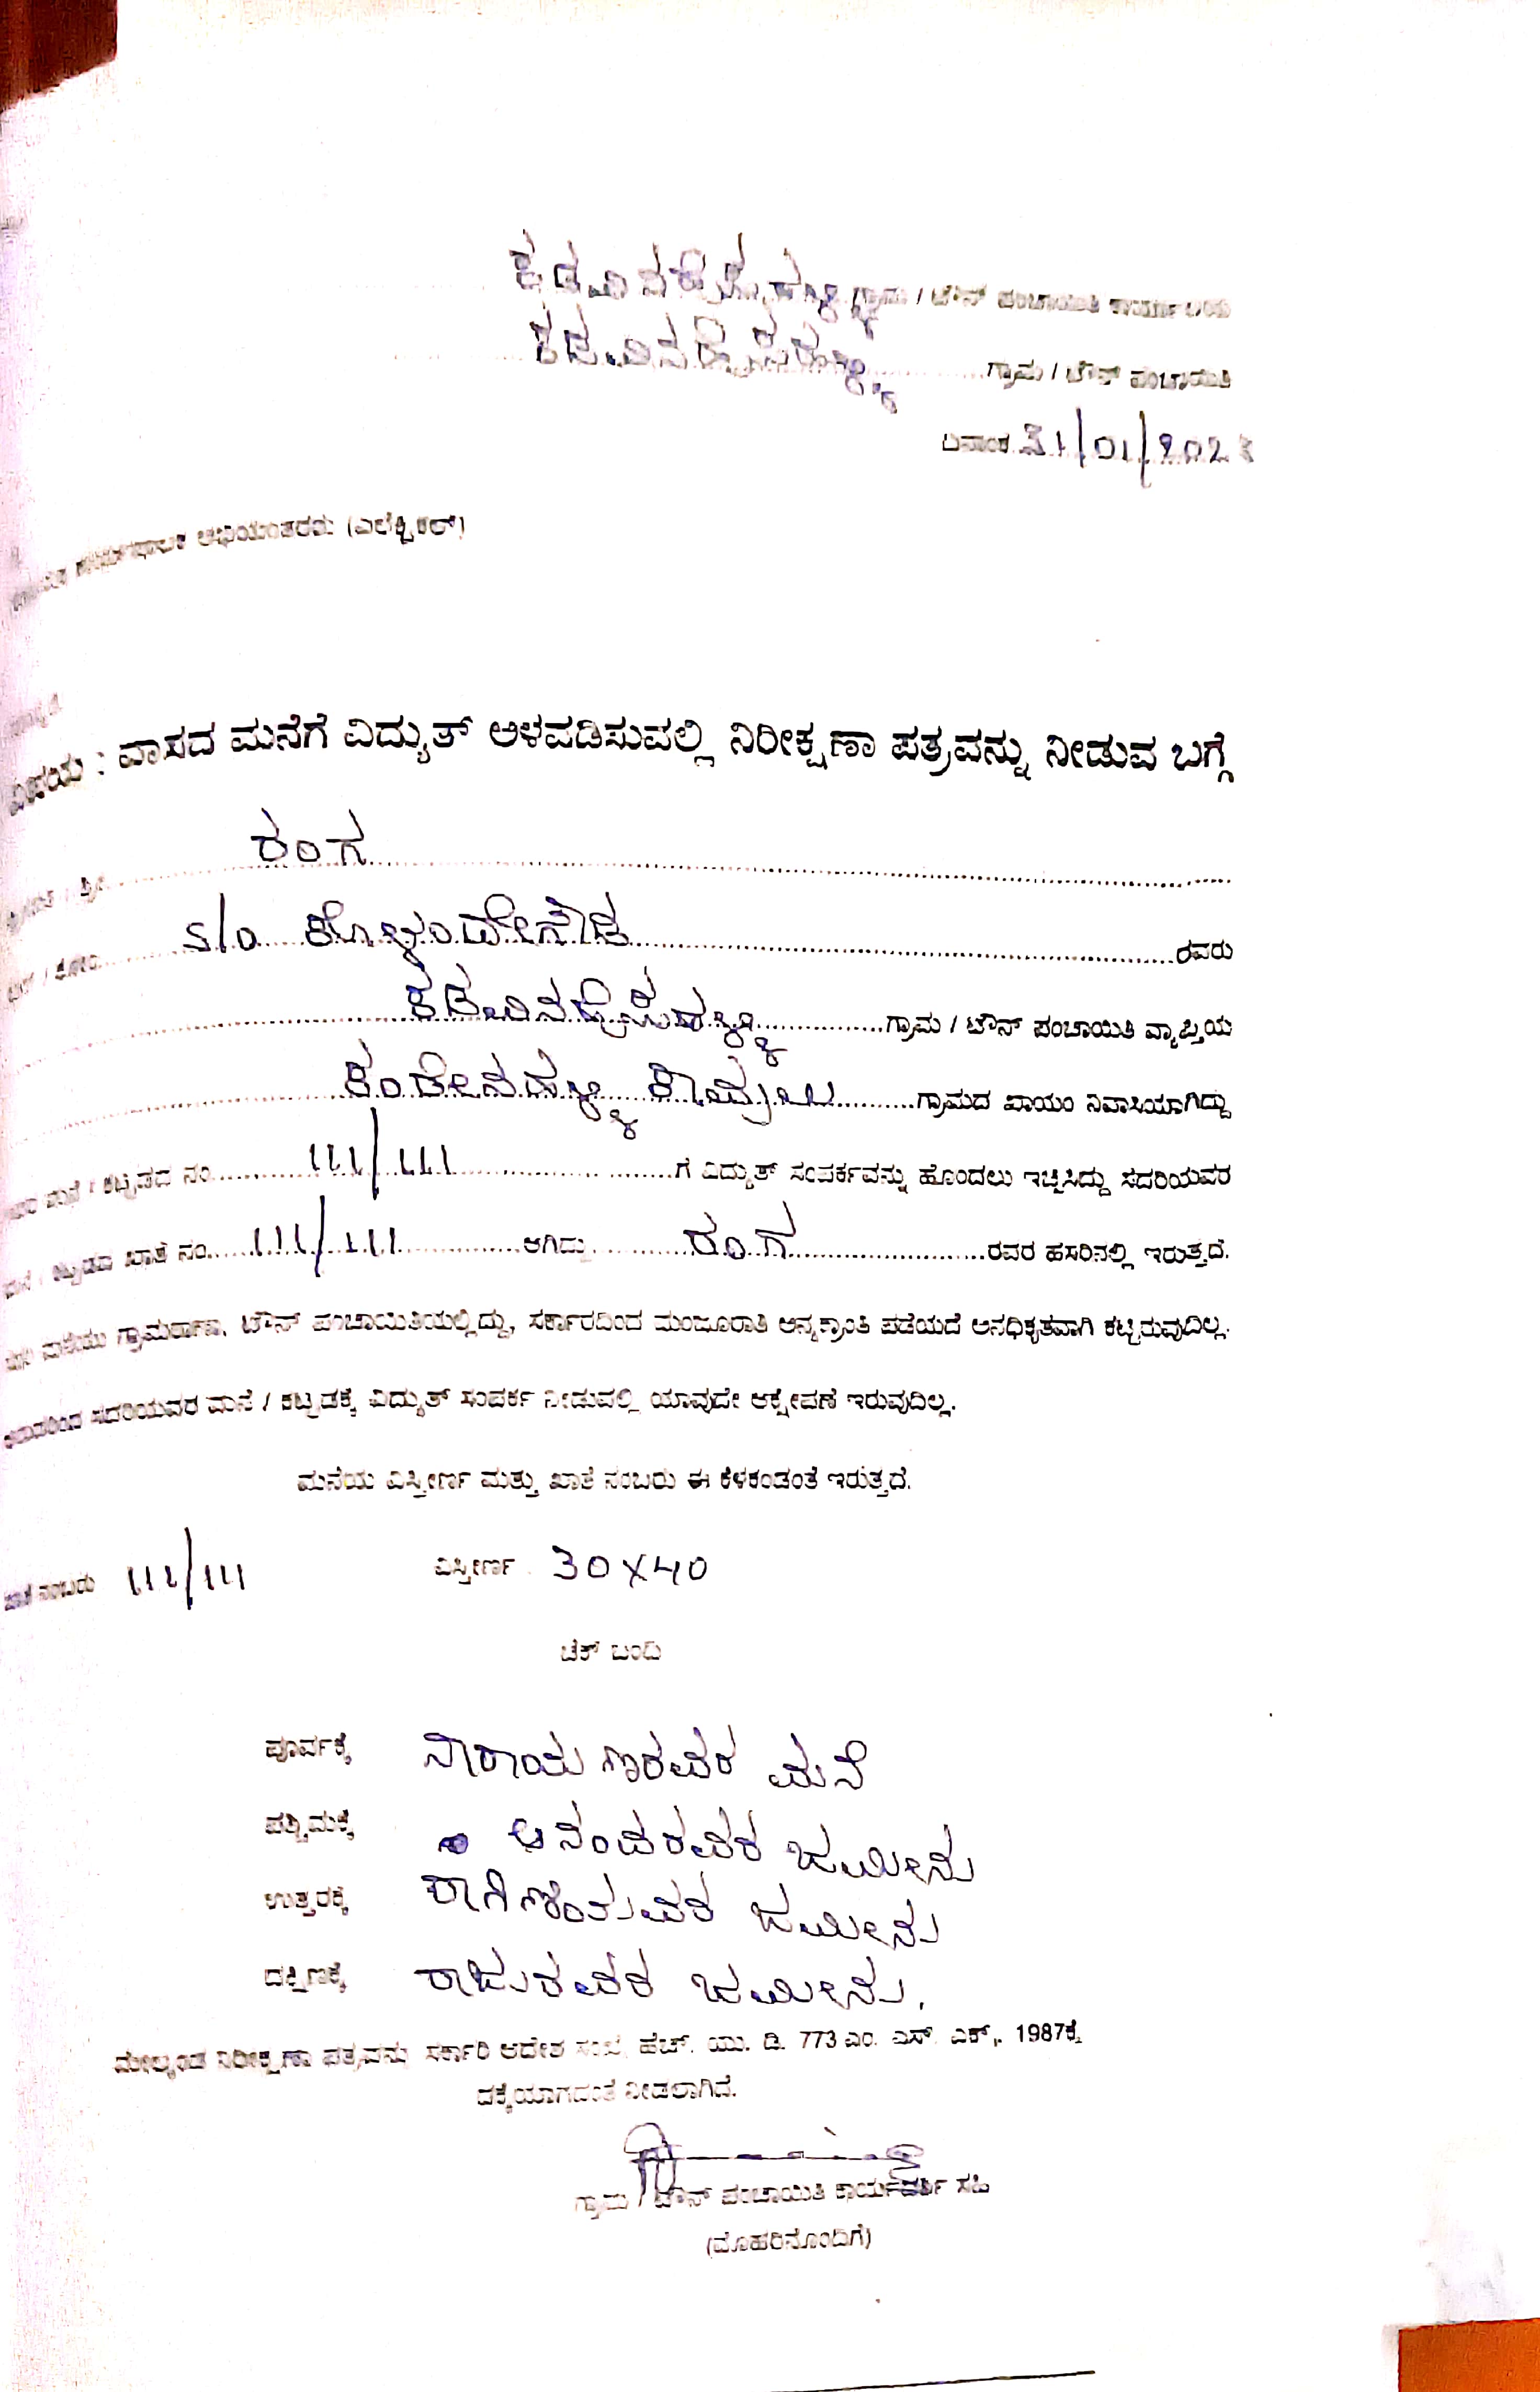 ಗ್ರಾಮ / ಟೌನ್ ಪಂಚಾಯಿತಿ ಕಾರ್ಯಾಲಯ
ಗ್ರಾಮ / ಟೌನ್ ಪಂಚಾಯಿತಿ
ದಿನಾಂಕ 31/01/202
ಅಭಿಯಂತರರು (ಎಲೆಕ್ಟ್ರಿಕಲ್)
ವಿಷಯ : ವಾಸದ ಮನೆಗೆ ವಿದ್ಯುತ್ ಅಳವಡಿಸುವಲ್ಲಿ ನಿರೀಕ್ಷಣಾ ಪತ್ರವನ್ನು ನೀಡುವ ಬಗ್ಗೆ
ರಂಗ
S/o ರವರು
ಗ್ರಾಮ / ಟೌನ್ ಪಂಚಾಯಿತಿ ವ್ಯಾಪ್ತಿಯ
ಗ್ರಾಮದ ಖಾಯಂ ನಿವಾಸಿಯಾಗಿದ್ದು
ಮನೆ / ಕಟ್ಟಡದ ನಂ 111/111 ಗೆ ವಿದ್ಯುತ್ ಸಂಪರ್ಕವನ್ನು ಹೊಂದಲು ಇಚ್ಛಿಸಿದ್ದು ಸದರಿಯವರ
ಮನೆ / ಕಟ್ಟಡದ ಖಾತೆ ನಂ. 111/111 ಆಗಿದ್ದು ರಂಗ ರವರ ಹೆಸರಿನಲ್ಲಿ ಇರುತ್ತದೆ.
ಗ್ರಾಮಠಾಣಾ, ಟೌನ್ ಪಂಚಾಯಿತಿಯಲ್ಲಿದ್ದು, ಸರ್ಕಾರದಿಂದ ಮಂಜೂರಾತಿ ಅನ್ಯಕ್ರಾಂತಿ ಪಡೆಯದೆ ಅನಧಿಕೃತವಾಗಿ ಕಟ್ಟಿರುವುದಿಲ್ಲ.
ಸದರಿಯವರ ಮನೆ / ಕಟ್ಟಡಕ್ಕೆ ವಿದ್ಯುತ್ ಸಂಪರ್ಕ ನೀಡುವಲ್ಲಿ ಯಾವುದೇ ಆಕ್ಷೇಪಣೆ ಇರುವುದಿಲ್ಲ.
ಮನೆಯ ವಿಸ್ತೀರ್ಣ ಮತ್ತು ಖಾತೆ ನಂಬರು ಈ ಕೆಳಕಂಡಂತೆ ಇರುತ್ತದೆ.
ಖಾತೆ ನಂಬರು 111/111 ವಿಸ್ತೀರ್ಣ 30X40
ಚೆಕ್ ಬಂದಿ
ಪೂರ್ವಕ್ಕೆ ನಾರಾಯಣರವರ ಮನೆ
ಪಶ್ಚಿಮಕ್ಕೆ ಆನಂದರವರ ಜಮೀನು
ಉತ್ತರಕ್ಕೆ ಜಮೀನು
ದಕ್ಷಿಣಕ್ಕೆ ರಾಜುರವರ ಜಮೀನು.
ಮೇಲ್ಕಂಡ ನಿರೀಕ್ಷಣಾ ಪತ್ರವನ್ನು ಸರ್ಕಾರಿ ಆದೇಶ ಸಂಖ್ಯೆ ಹೆಚ್. ಯು. ಡಿ. 773 ಎಂ. ಎಸ್. ಎಕ್,. 1987ಕ್ಕೆ
ದಕ್ಕೆಯಾಗದಂತೆ ನೀಡಲಾಗಿದೆ.
ಗ್ರಾಮ / ಟೌನ್ ಪಂಚಾಯಿತಿ ಕಾರ್ಯದರ್ಶಿ ಸಹಿ
(ಮೊಹರಿನೊಂದಿಗೆ)